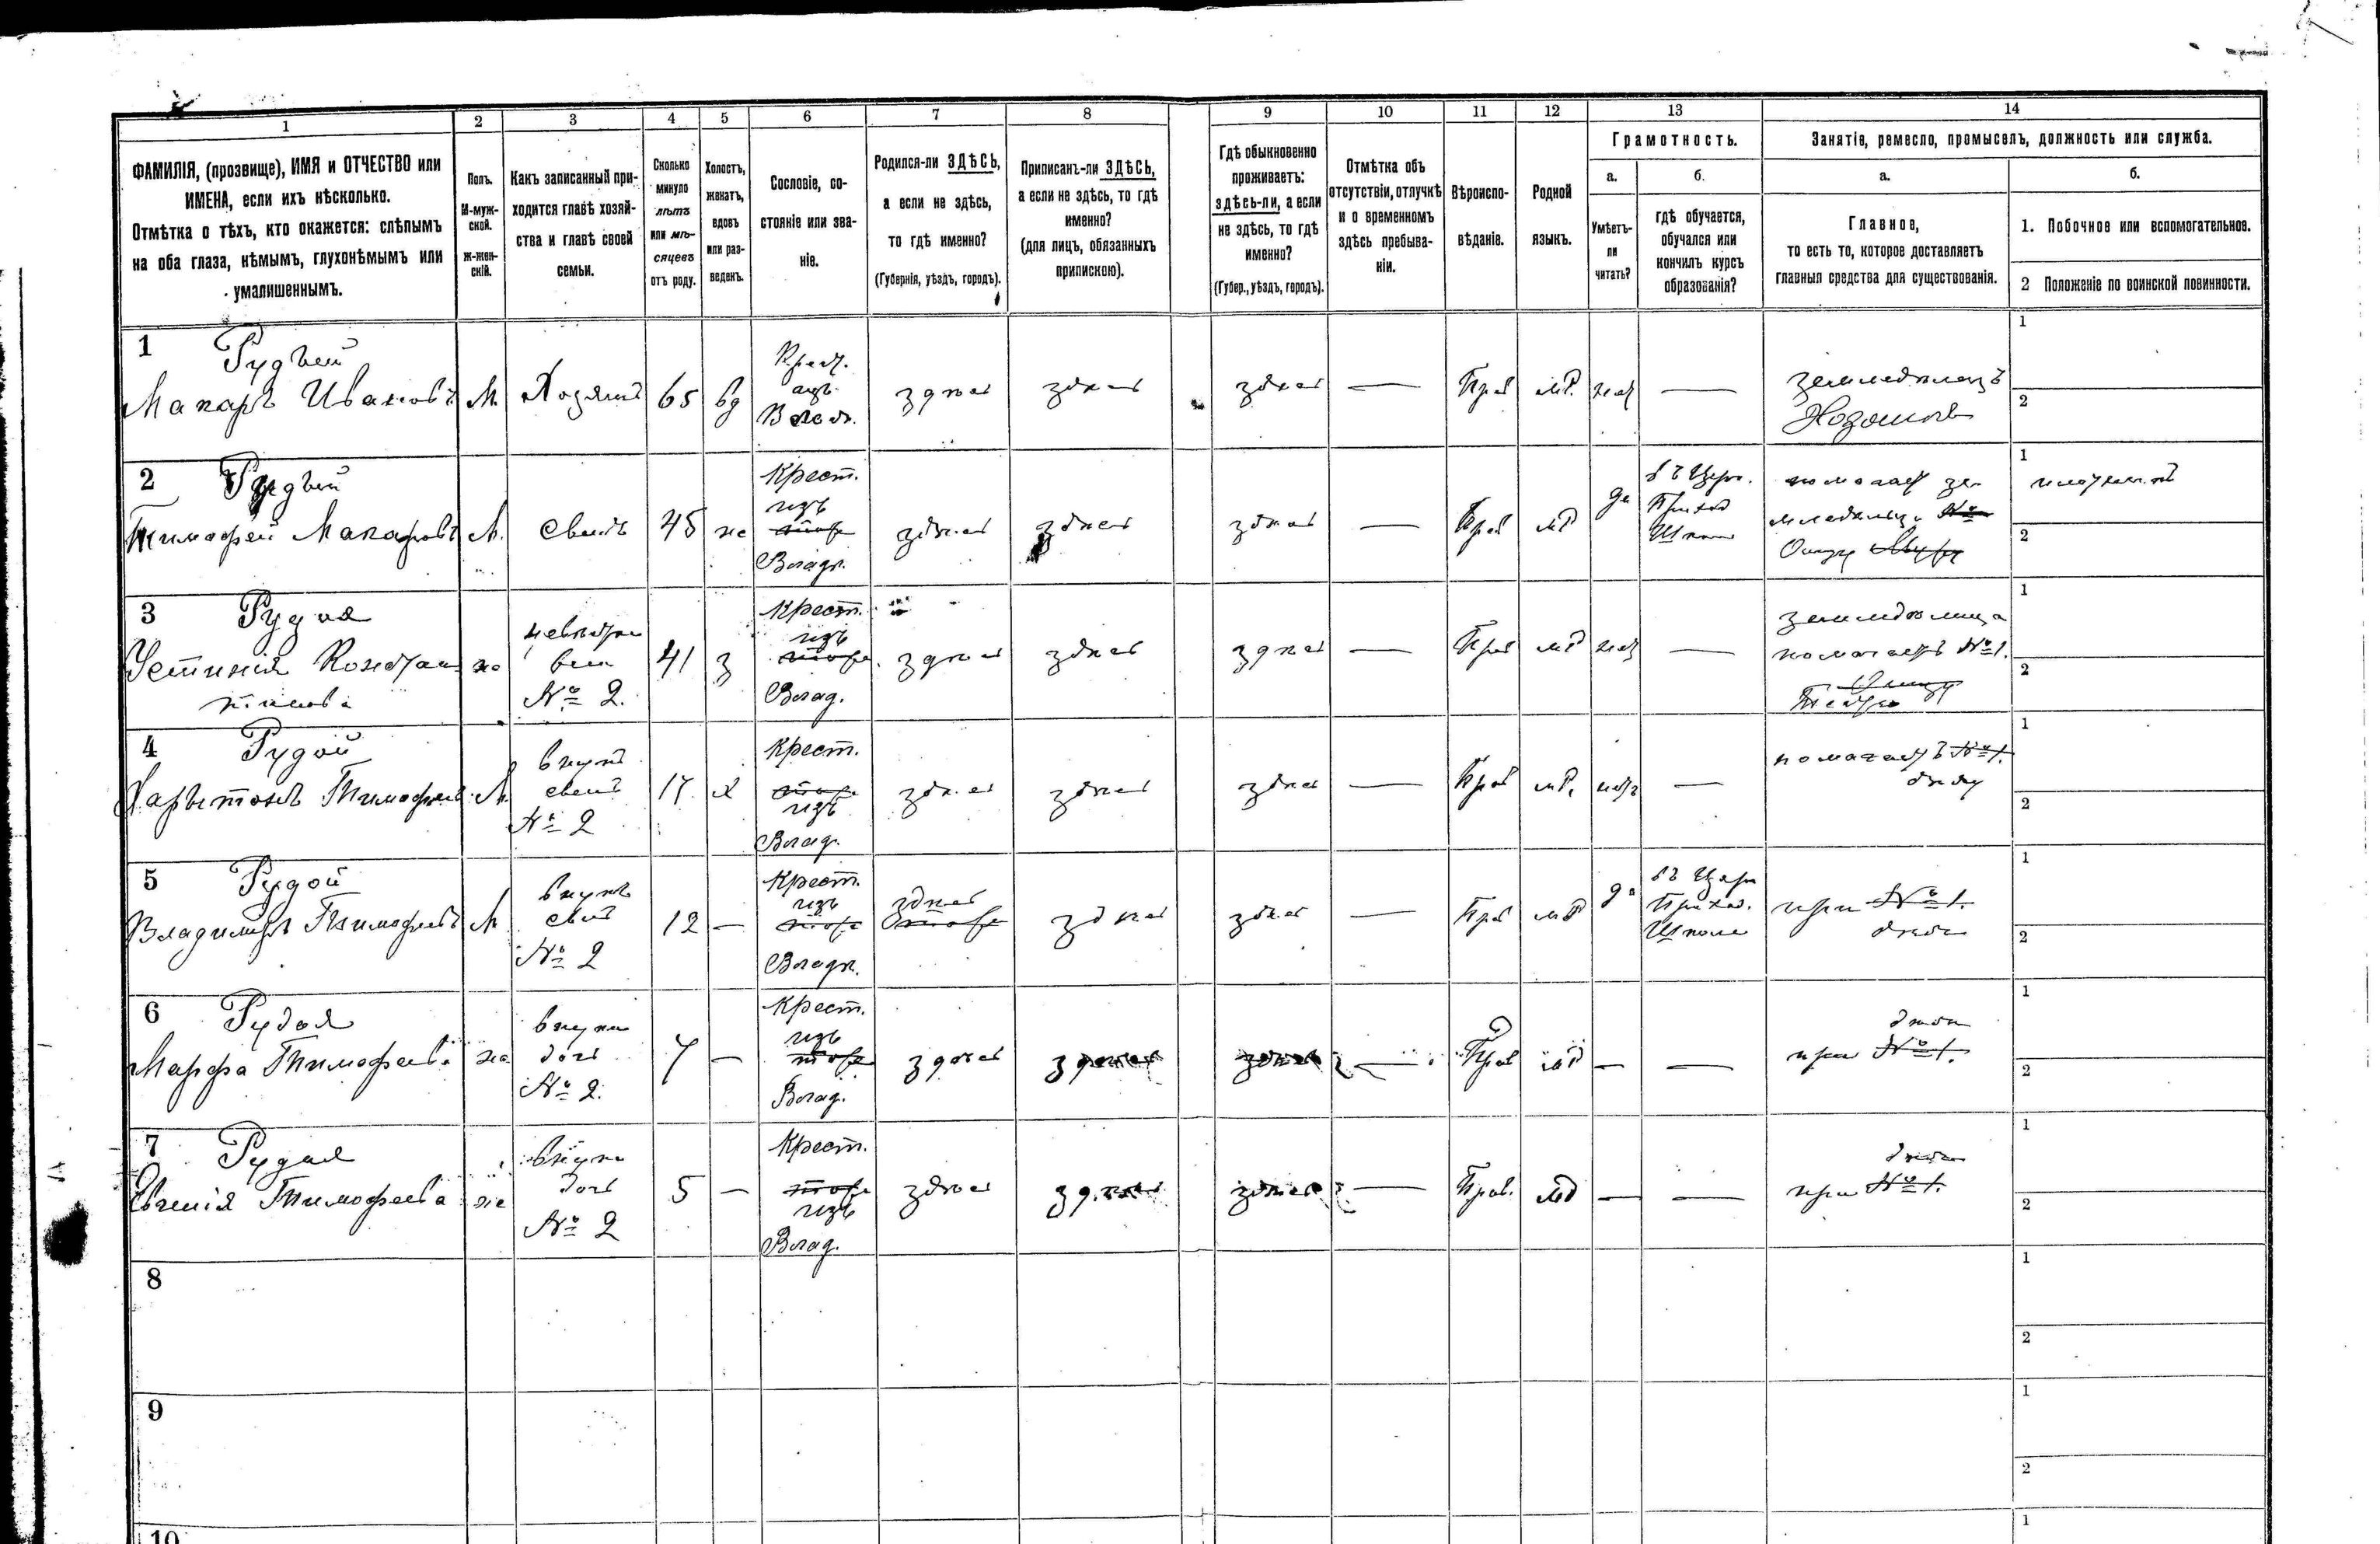 1
2
3
4
5
6
7
8
9
10
11
12
13
14
ФАМИЛІЯ, (прозвище), ИМЯ и ОТЧЕСТВО или
ИМЕНА, если ихъ нѣсколько.
Отмѣтка о тѣхъ, кто окажется: слѣпымъ
на оба глаза, нѣмымъ, глухонѣмымъ или
умалишеннымъ.
Полъ.
М-муж-
ской.
ж-жен-
скій.
Какъ записанный при-
ходится главѣ хозяй-
ства и главѣ своей
семьи.
Сколько
минуло
лѣтъ
или мѣ-
сяцевъ
отъ роду.
Холостъ,
женатъ,
вдовъ
или раз-
веденъ.
Сословіе, со-
стояніе или зва-
ніе.
Родился-ли ЗДѢСЬ,
а если не здѣсь,
то гдѣ именно?
(Губернія, уѣздъ, городъ).
Приписанъ-ли ЗДѢСЬ,
а если не здѣсь, то гдѣ
именно?
(для лицъ, обязанныхъ
припискою).
Гдѣ обыкновенно
проживаетъ:
здѣсь-ли, а если
не здѣсь, то гдѣ
именно?
(Губер., уѣздъ, городъ).
Отмѣтка объ
отсутствіи, отлучкѣ
и о временномъ
здѣсь пребыва-
ніи.
Вѣроиспо-
вѣданіе.
Родной
языкъ.
Грамотность.
а.
Умѣетъ-
ли
читать?
б.
гдѣ обучается,
обучался или
кончилъ курсъ
образованія?
Занятіе, ремесло, промыселъ, должность или служба.
а.
Главное,
то есть то, которое доставляетъ
главныя средства для существованія.
б.
1. Побочное или вспомогательное.
2 Положеніе по воинской повинности.
1
Макаръ Ивановъ
М
Хозяинъ
65
вд
Крест.
изъ
Влад.
здѣсь
здѣсь
здѣсь
—
Прав
мР.
нѣт
—
земледѣлецъ
Хозяинъ
1
2
2
Тимофей Макаровъ
М.
сынъ
45
же
Крест.
изъ
Владѣ.
здѣсь
здѣсь
здѣсь
—
Прав
мР
да
въ Церк.
Приход
Школѣ
Отцу
1
2
3
Рудая
Устинія Кондра
тьева
же
невѣстка
жена
№ 2.
41
з
Крест.
изъ
Влад.
здѣсь
здѣсь
здѣсь
—
Прав
мР
нѣт
—
помогаетъ №1.
1
2
4
Рудой
Харытонъ Тимофеевъ
М.
внукъ
сынъ
№ 2
17
х
Крест.
изъ
Влад.
здѣсь
здѣсь
здѣсь
—
Прав
мР.
нѣтъ
—
помогаетъ №1.
дѣду
1
2
5
Рудой
Владимиръ Тимофеевъ
М
внукъ
сынъ
№ 2
12
—
Крест.
изъ
Владѣ.
здѣсь
здѣсь
здѣсь
—
Прав
мР
да
въ Церк
Приход.
Школе
при №1.
дѣдѣ
1
2
6
Рудая
Марфа Тимофеева
же
внучка
дочь
№ 2.
7
—
Крест.
изъ
Влад.
здѣсь
здѣсь
здѣсь
—
Прав
мР
—
—
дѣдѣ
при №1.
1
2
7
Рудая
Евгенія Тимофеева
же
внучка
дочь
№ 2
5
—
Крест.
изъ
Влад.
здѣсь
здѣсь
здѣсь
—
Прав.
мР
—
—
дѣдѣ
при №1.
1
2
8
1
2
9
1
2
10
1